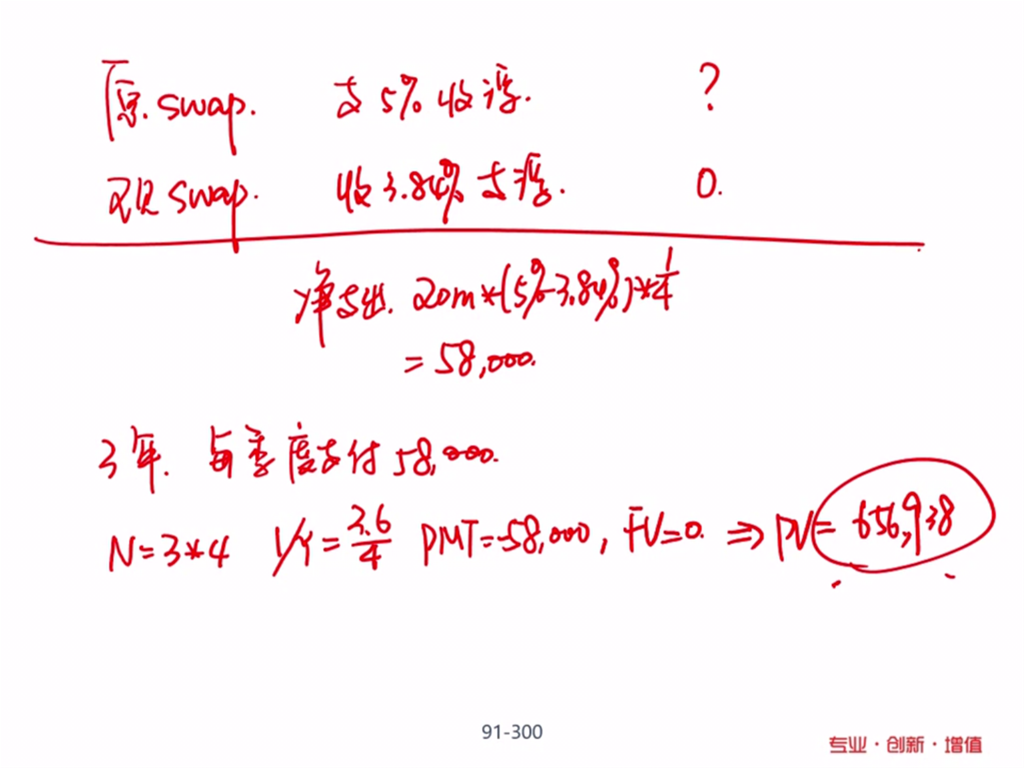 原.swap. 支5%收浮. ?
现swap. 收3.84%支浮. 0.
净支出. 20m*(5%-3.84%)*1/4
=58,000.
3年. 每季度支付58,000.
N=3*4 I/Y=3.6/4 PMT=-58,000, FV=0. ⇒ PV=656,938
91-300
专业·创新·增值